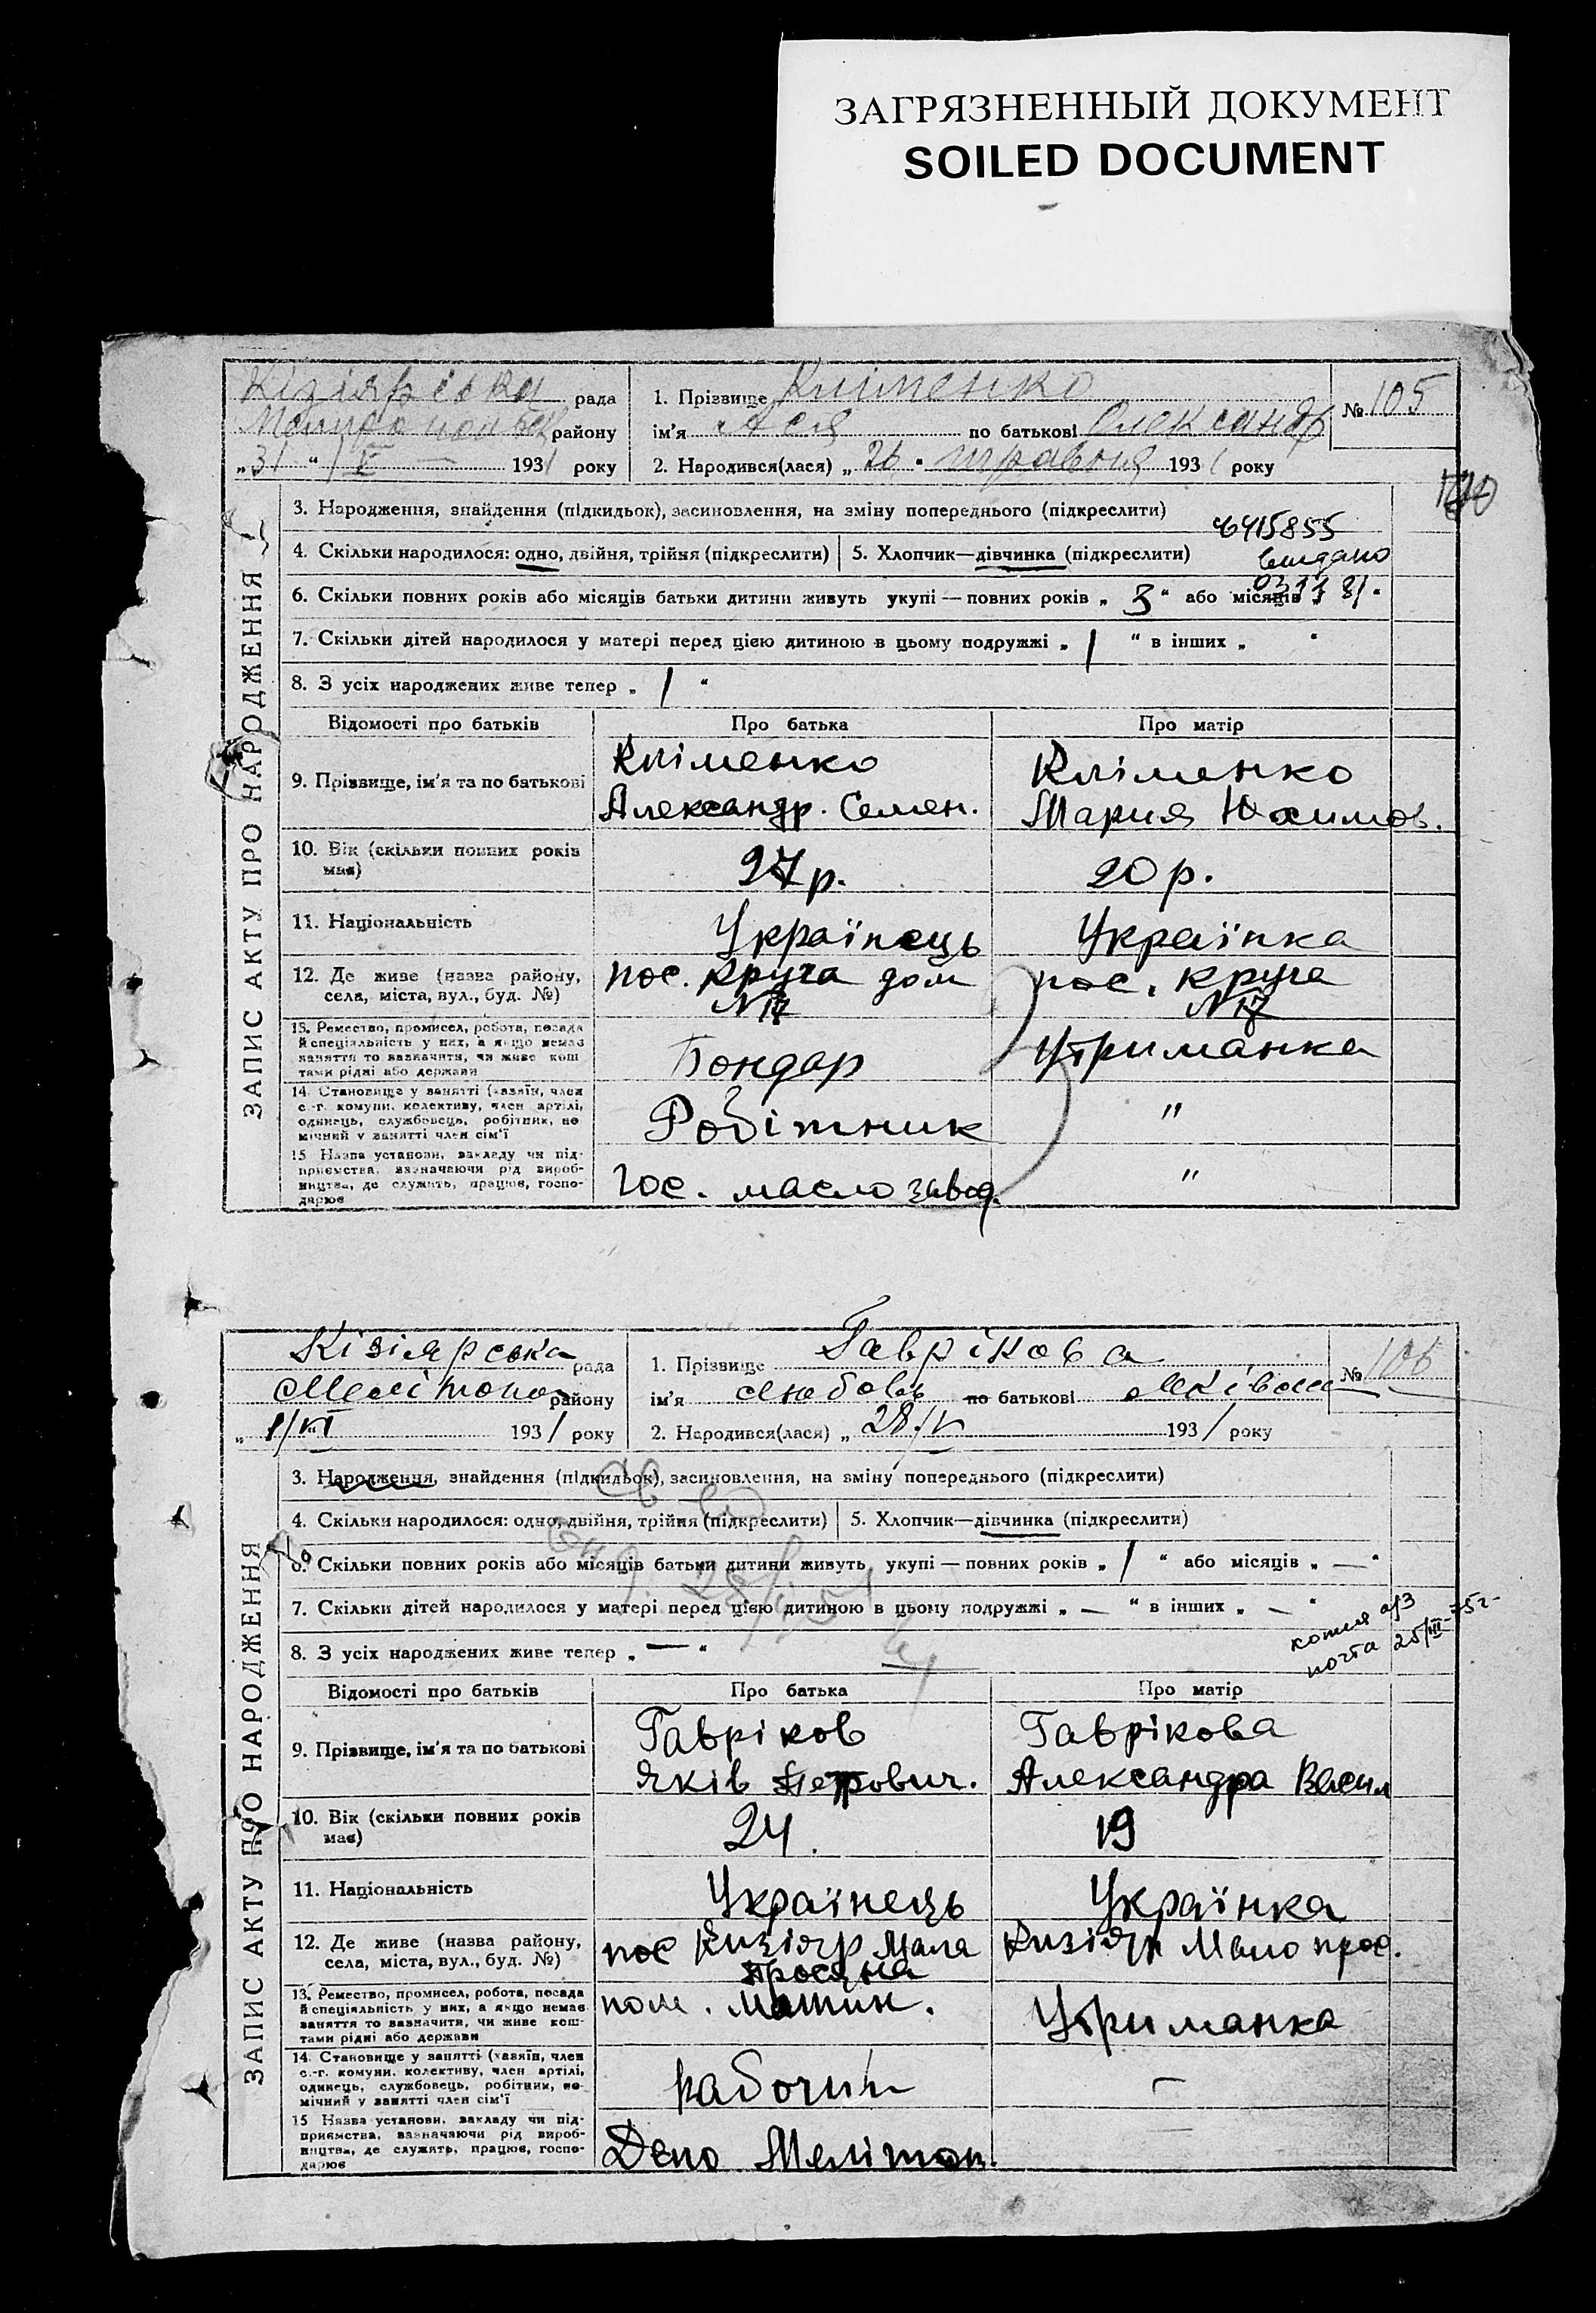 ЗАГРЯЗНЕННЫЙ ДОКУМЕНТ
SOILED DOCUMENT
Кізіярська рада
району
„31“ V 1931 року
1. Прізвище Кліменко
ім'я Ася по батькові Олександр
2. Народився(лася) „26“ травня 1931 року
№ 105
3. Народження, знайдення (підкидьок), засиновлення, на зміну попереднього (підкреслити)
6415855
4. Скільки народилося: одно, двійня, трійня (підкреслити)
5. Хлопчик—дівчинка (підкреслити)
видано
6. Скільки повних років або місяців батьки дитини живуть укупі — повних років „3“ або місяців
7. Скільки дітей народилося у матері перед цією дитиною в цьому подружжі „1“ в інших „ “
8. З усіх народжених живе тепер „1“
ЗАПИС АКТУ ПРО НАРОДЖЕННЯ
Відомості про батьків
Про батька
Про матір
9. Прізвище, ім'я та по батькові
Кліменко
Александр. Семен.
Кліменко
Мария Юхимов.
10. Вік (скільки повних років має)
27 р.
20 р.
11. Національність
Українець
Українка
12. Де живе (назва району,
села, міста, вул., буд. №)
пос. Круча дом
N 17
пос. Круча
N 17
13. Ремество, промисел, робота, посада
й спеціяльність у них, а якщо немає
заняття то зазначити, чи живе кош
тами рідні або держави
Бондар
Утриманка
14. Становище у занятті (хазяїн, член
с.-г. комуни, колективу, член артілі,
одинець, службовець, робітник, по
мічний у занятті член сім'ї
Робітник
"
15 Назва установи, закладу чи під-
приємства, зазначаючи рід вироб-
ництва, де служить, працює, госпо-
дарює
Гос. масло завод.
"
Кізіярська рада
Мелітопол району
1/VI 1931 року
1. Прізвище Гаврікова
ім'я Любовь по батькові Яківна
2. Народився(лася) „28/V 1931 року
№ 106
3. Народження, знайдення (підкидьок), засиновлення, на зміну попереднього (підкреслити)
4. Скільки народилося: одно, двійня, трійня (підкреслити)
5. Хлопчик—дівчинка (підкреслити)
6. Скільки повних років або місяців батьки дитини живуть укупі — повних років „1“ або місяців „—“
7. Скільки дітей народилося у матері перед цією дитиною в цьому подружжі „—“ в інших „—“
8. З усіх народжених живе тепер „—“
копия а/з
почта 25/III-75г-
ЗАПИС АКТУ ПРО НАРОДЖЕННЯ
Відомості про батьків
Про батька
Про матір
9. Прізвище, ім'я та по батькові
Гавріков
Яків Петрович.
Гаврікова
Александра Васил
10. Вік (скільки повних років
має)
24.
19
11. Національність
Українець
Українка
12. Де живе (назва району,
села, міста, вул., буд. №)
пос Кизіяр Мала
Кизіяр Мало прос.
13. Ремество, промисел, робота, посада
й спеціяльність у них, а якщо немає
заняття то зазначити, чи живе кош-
тами рідні або держави
пом. машин.
Утриманка
14. Становище у занятті (хазяїн, член
с.-г. комуни, колективу, член артілі,
одинець, службовець, робітник, по-
мічний у занятті член сім'ї
рабочий
—
15 Назва установи, закладу чи під-
приємства, зазначаючи рід вироб-
ництва, де служить, працює, госпо-
дарює
Депо Мелітоп.
—